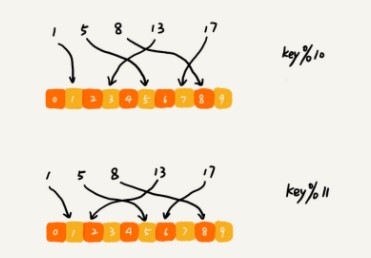 1 5 8 13 17
key%10
0 1 2 3 4 5 6 7 8 9
1 5 8 13 17
key%11
0 1 2 3 4 5 6 7 8 9